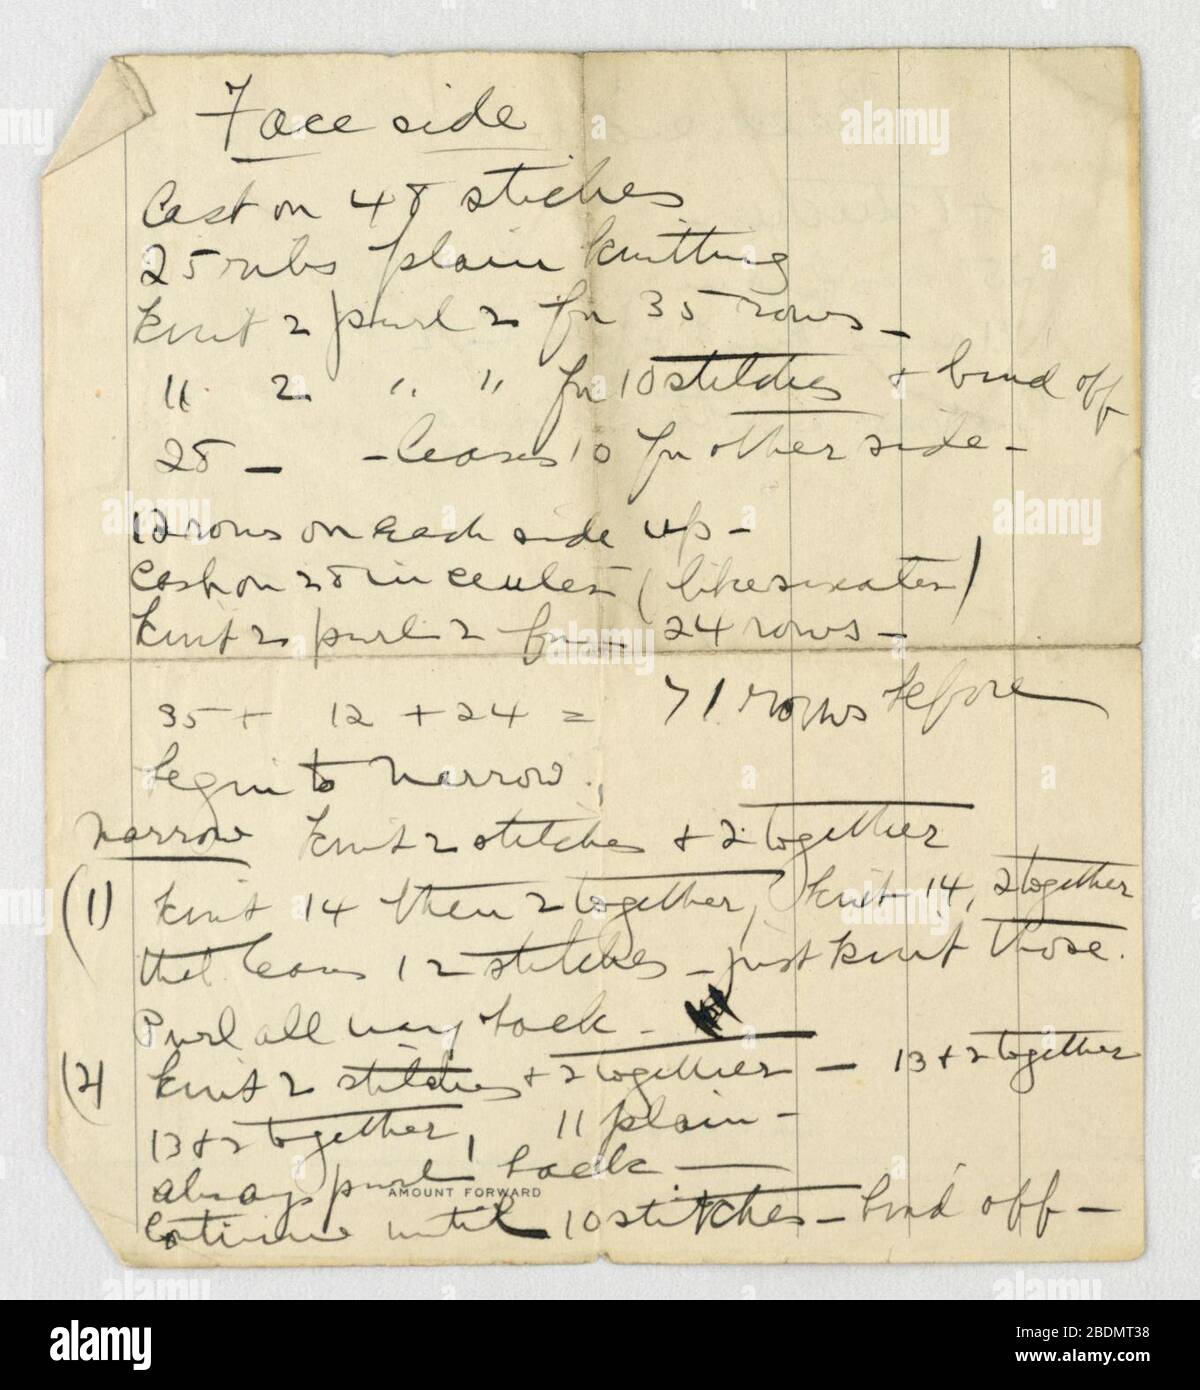 Face side
Cast on 48 stiches
25 ribs plain knitting
Knit 2 purl 2 for 35 rows -
" 2 " " for 10 stitches & bind off
28 - - leaves 10 for other side -
12 rows on each side up -
Cast on 28 in center (like
Knit 2 purl 2 for 24 rows -
35 + 12 + 24 = 71 rows before
begin to narrow.
Narrow Knit 2 stitches & 2 together
(1) Knit 14 then 2 together, Knit 14, 2 together
that leaves 12 stitches - just knit those.
Purl all way back -
(2) Knit 2 stitches & 2 together - 13 & 2 together
13 & 2 together, 11 plain -
always purl back -
AMOUNT FORWARD
Continue until 10 stitches - bind off -
alamy
Image ID: 2BDMT38
www.alamy.com